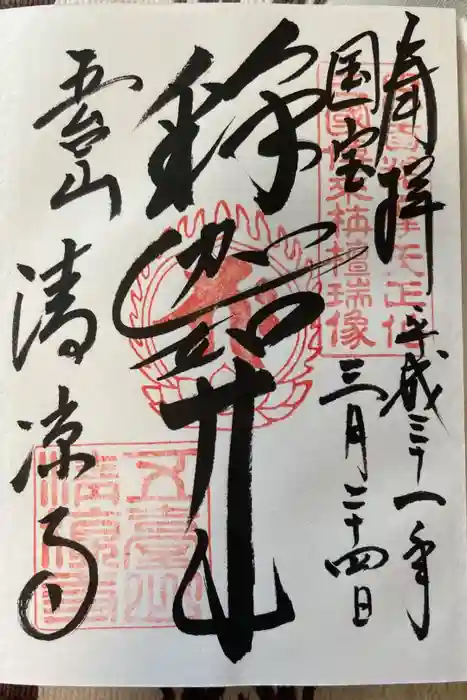 奉拝 平成三十一年
国宝 三月二十四日
三國傳来栴檀瑞像
釋迦
五台山 清凉寺
五臺山
清凉寺